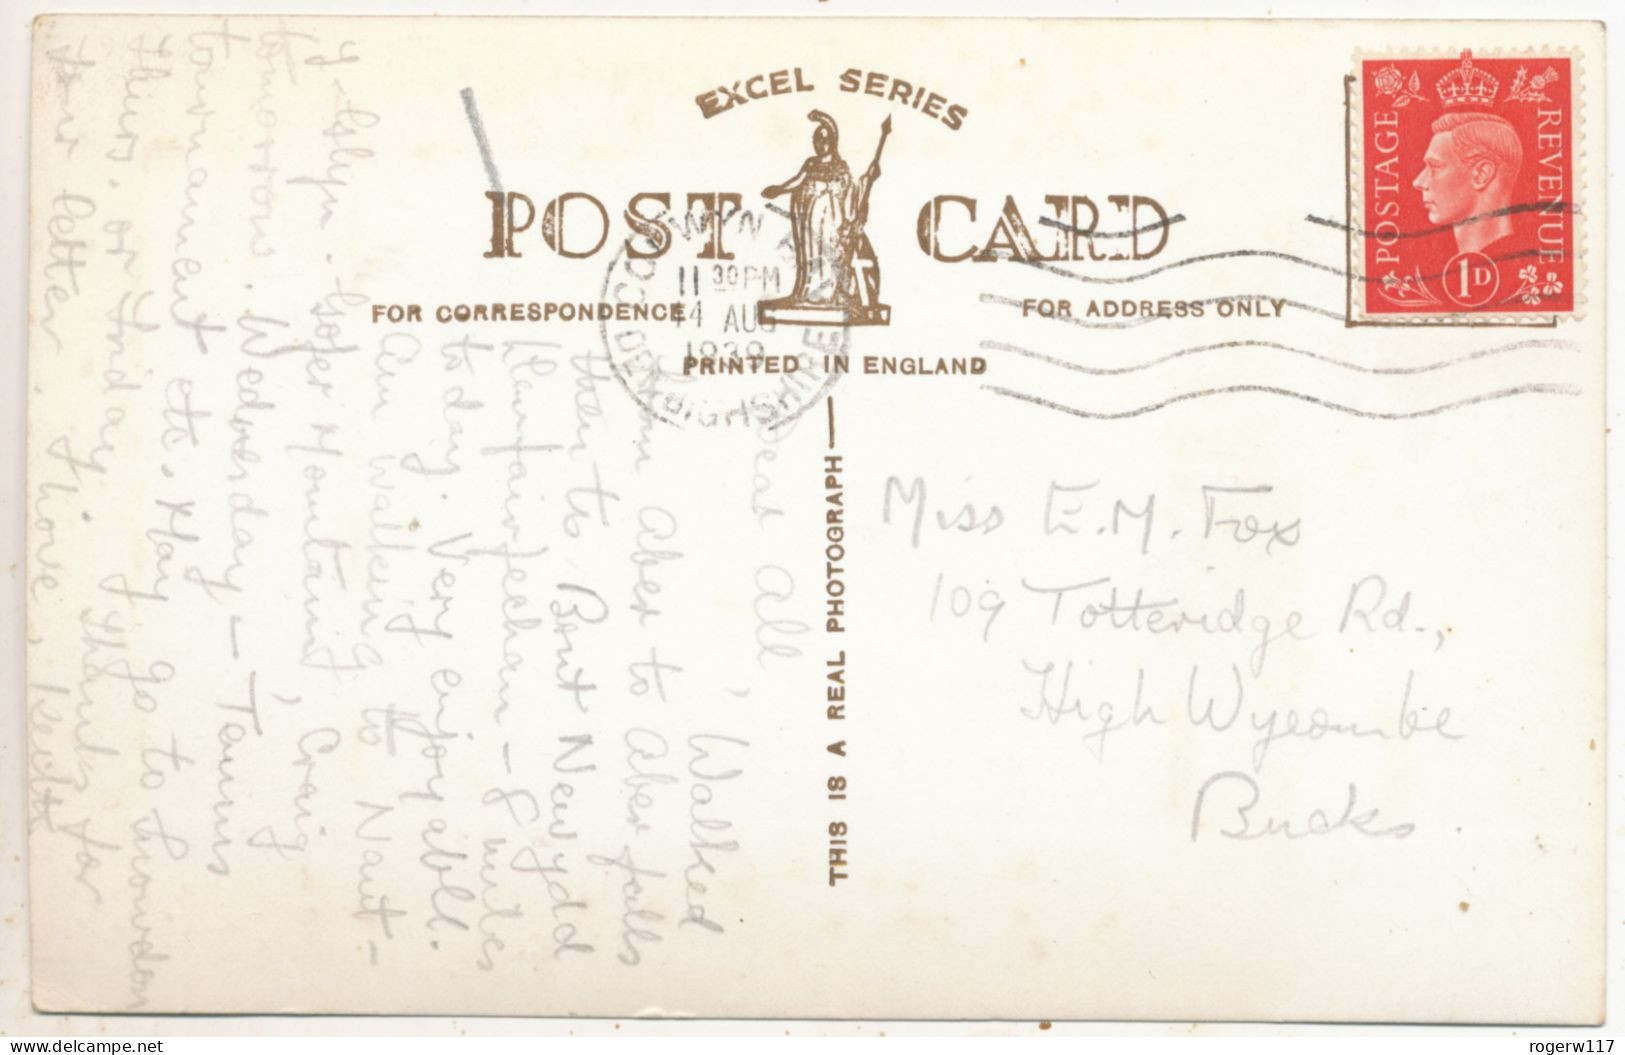 EXCEL SERIES
POST CARD
FOR CORRESPONDENCE
FOR ADDRESS ONLY
PRINTED IN ENGLAND
THIS IS A REAL PHOTOGRAPH
COLWYN BAY
11 30 PM
14 AUG
1939
DENBIGHSHIRE
POSTAGE
REVENUE
1D
Miss E.M. Fox
109 Totteridge Rd.,
High Wycombe
Bucks.
Dear all,
Walked
from Aber to Aber falls
then to Bont Newydd
Llanfairfechan - 8 miles
today. Very enjoyable.
Am walking to Nant-
y-Glyn. Mountain, Craig
tomorrow. Wednesday - Tennis
tournament etc. May go to Snowdon
Thurs. or Friday. Thanks for
your letter. Love, Keith
rogerw117